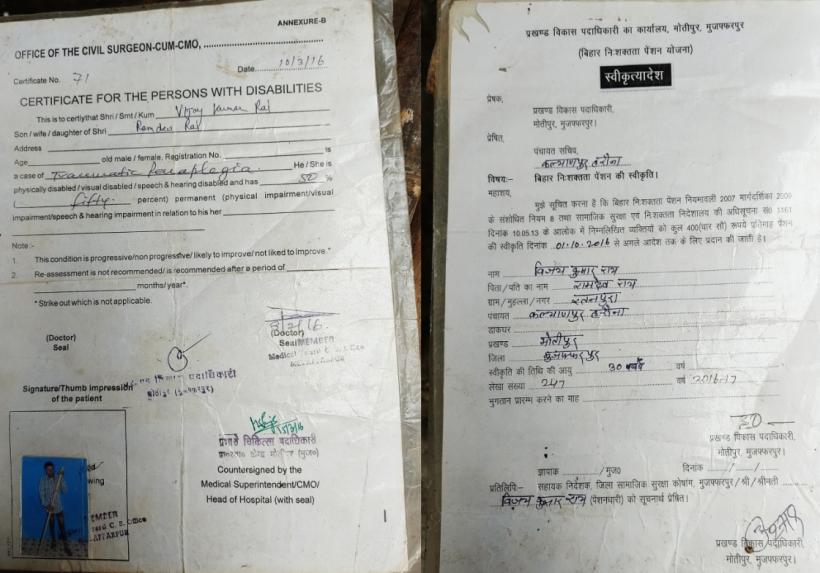 ANNEXURE-B
OFFICE OF THE CIVIL SURGEON-CUM-CMO, ........................
Date. 10/3/16
Certificate No. 71
CERTIFICATE FOR THE PERSONS WITH DISABILITIES
This is to certiythat Shri / Smt / Kum Vijay Kumar Rai
Son / wife / daughter of Shri Ramdev Rai
Address
Age old male / female, Registration No. is
a case of Traumatic Paraplegia. He / She is
physically disabled / visual disabled / speech & hearing disabled and has 50 %
( fifty percent) permanent (physical impairment/visual
impairment/speech & hearing impairment in relation to his her
Note :-
1. This condition is progressive/non progressive/ likely to improve/ not liked to improve.*
2. Re-assessment is not recommended/ is recommended after a period of
months/ year*.
* Strike out which is not applicable.
(Doctor)
Seal
(Doctor)
Seal MEMBER
Signature/Thumb impression
of the patient
पदाधिकारी
चिकित्सा पदाधिकारी
Countersigned by the
Medical Superintendent/CMO/
Head of Hospital (with seal)
प्रखण्ड विकास पदाधिकारी का कार्यालय, मोतीपुर, मुजफ्फरपुर
(बिहार निःशक्तता पेंशन योजना)
स्वीकृत्यादेश
प्रेषक,
प्रखण्ड विकास पदाधिकारी,
मोतीपुर, मुजफ्फरपुर।
प्रेषित,
पंचायत सचिव,
कल्याणपुर हरौना
विषयः- बिहार निःशक्तता पेंशन की स्वीकृति।
महाशय,
मुझे सूचित करना है कि बिहार निःशक्तता पेंशन नियमावली 2007 मार्गदर्शिका 2009
के संशोधित नियम 8 तथा सामाजिक सुरक्षा एवं निःशक्तता निदेशालय की अधिसूचना सं0 1161
दिनांक 10.05.13 के आलोक में निम्नलिखित व्यक्तियों को कुल 400(चार सौ) रूपये प्रतिमाह पेंशन
की स्वीकृति दिनांक 01.10.2016 से अगले आदेश तक के लिए प्रदान की जाती है।
नाम विजय कुमार राय
पिता/पति का नाम रामदेव राय
ग्राम/मुहल्ला/नगर रतनपुरा
पंचायत कल्याणपुर हरौना
डाकघर
प्रखण्ड मोतीपुर
जिला मुजफ्फरपुर
स्वीकृति की तिथि की आयु 30 वर्ष वर्ष
लेखा संख्या 247 वर्ष 2016-17
भुगतान प्रारम्भ करने का माह
प्रखण्ड विकास पदाधिकारी,
मोतीपुर, मुजफ्फरपुर।
ज्ञापांक ............/मुज0 दिनांक ....../....../......
प्रतिलिपिः- सहायक निदेशक, जिला सामाजिक सुरक्षा कोषांग, मुजफ्फरपुर/श्री/श्रीमती ..........
विजय कुमार राय (पेंशनधारी) को सूचनार्थ प्रेषित।
प्रखण्ड विकास पदाधिकारी,
मोतीपुर, मुजफ्फरपुर।